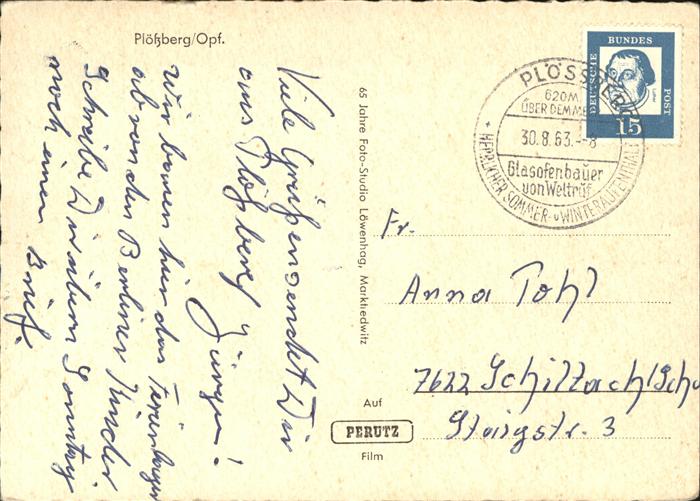 Plößberg/Opf.
Viele Grüße sendet Dir
aus Plößberg
Jürgen!
Wir bauen hier das Ferienlager
ab von den Berliner Kinder
Schreibe Dir übern Sonntag
noch einen Brief.
65 Jahre Foto-Studio Löwenhag, Marktredwitz
Auf
PERUTZ
Film
PLÖSSBERG
620M
ÜBER DEM MEER
30.8.63.-8
Glasofenbauer
von Weltruf
HERRLICHER SOMMER- u WINTERAUFENTHALT
DEUTSCHE
BUNDES
POST
15
Fr.
Anna Pohl
7622 Schiltach/Schw
Staigstr. 3